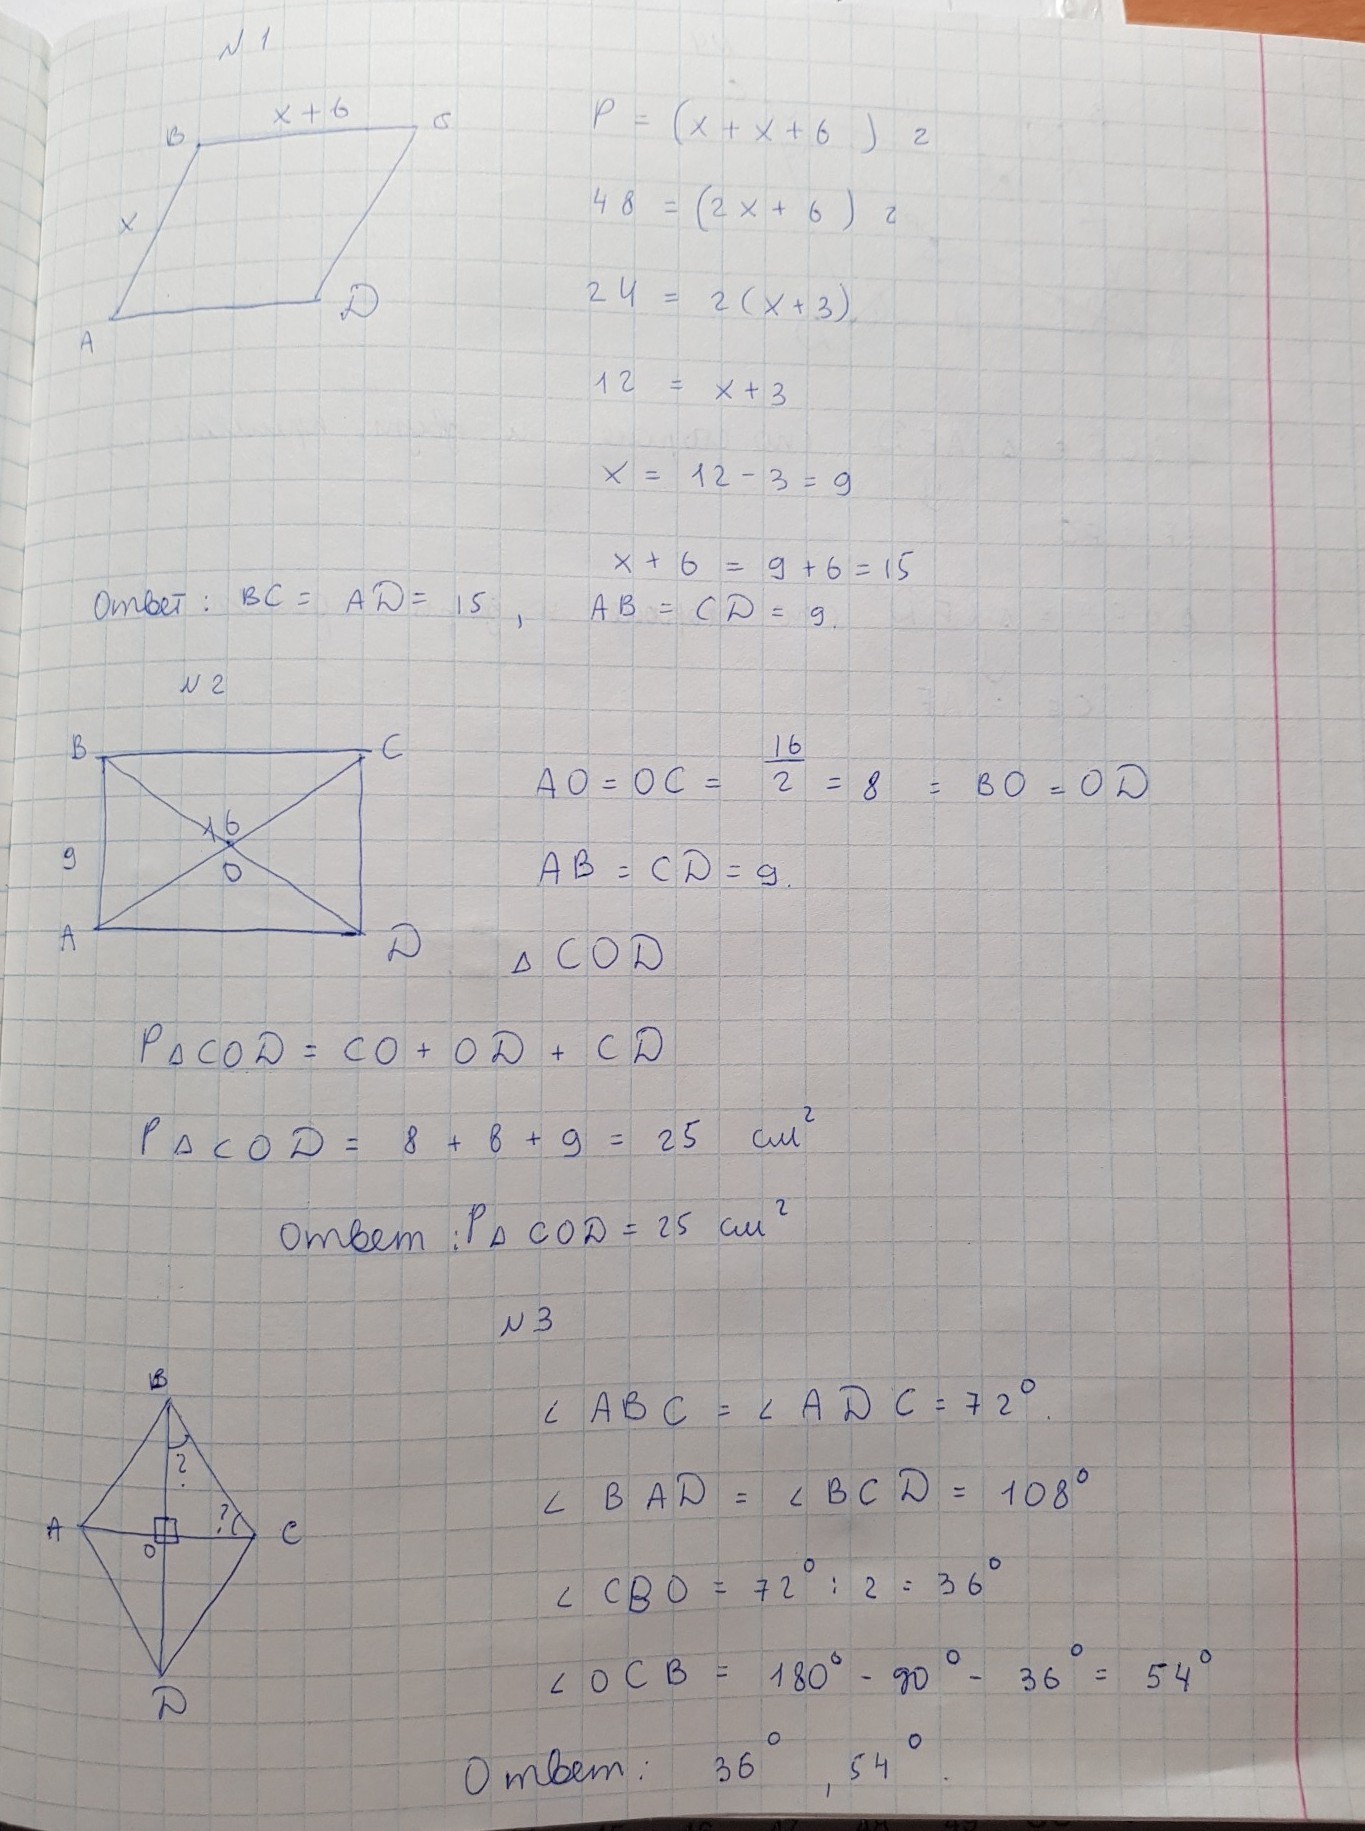 N 1
x + 6
B
C
x
A
D
P = (x + x + 6) 2
48 = (2x + 6) 2
24 = 2(x+3)
12 = x+3
x = 12 - 3 = 9
x + 6 = 9 + 6 = 15
Ответ: BC = AD = 15, AB = CD = 9.
N 2
B
C
16
9
O
A
D
AO = OC = 16/2 = 8 = BO = OD
AB = CD = 9.
Δ COD
PΔCOD = CO + OD + CD
PΔCOD = 8 + 8 + 9 = 25 см²
Ответ: PΔCOD = 25 см²
N 3
B
?
A
?
C
O
D
∠ ABC = ∠ ADC = 72°.
∠ BAD = ∠ BCD = 108°
∠ CBO = 72° : 2 = 36°
∠ OCB = 180° - 90° - 36° = 54°
Ответ: 36°, 54°.